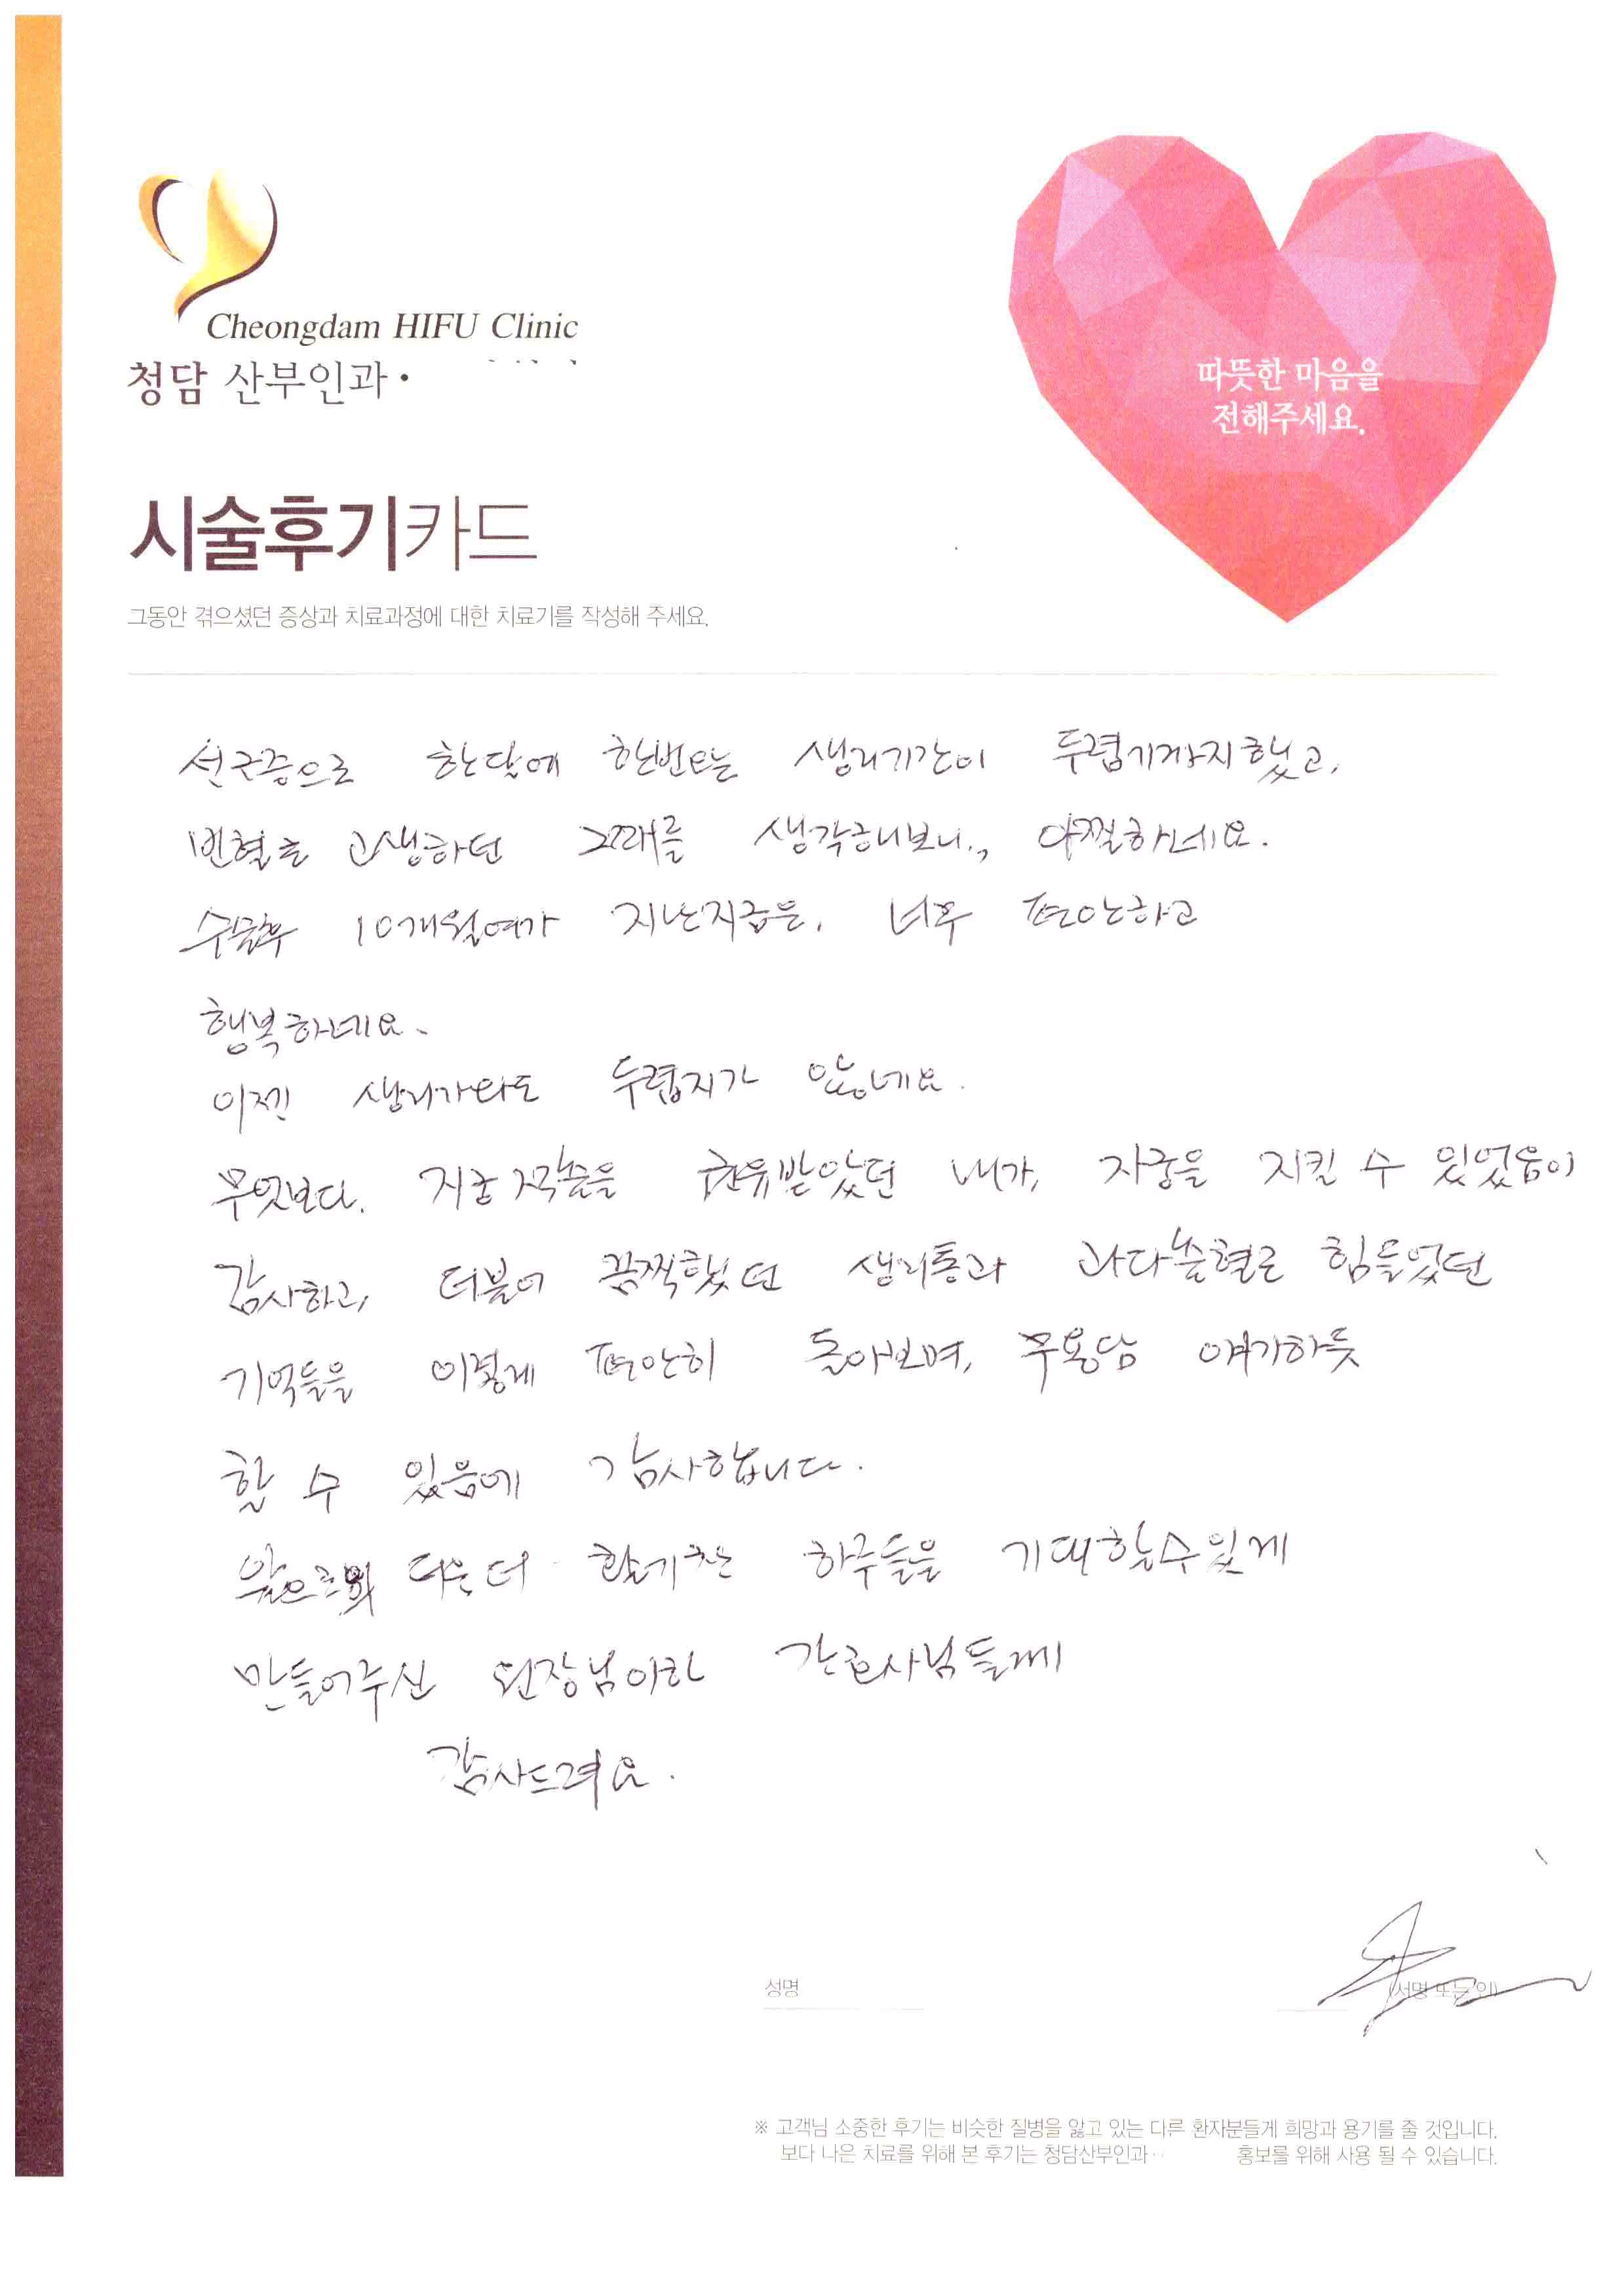 Cheongdam HIFU Clinic
청담 산부인과
따뜻한 마음을
전해주세요.
시술후기카드
그동안 겪으셨던 증상과 치료과정에 대한 치료기를 작성해 주세요.
선근증으로 한달에 한번 생리기간이 두렵기까지했고,
빈혈로 고생하던 그때를 생각해보니., 아찔하네요.
수술후 10개월여가 지난지금은, 너무 편안하고
행복하네요.
이젠 생리가와도 두렵지가 않네요.
무엇보다. 자궁적출을 권유받았던 내가, 자궁을 지킬 수 있었음이
감사하고, 더불어 끔찍했던 생리통과 과다출혈로 힘들었던
기억들을 이렇게 편안히 돌아보며, 무용담 얘기하듯
할 수 있음에 감사합니다.
앞으로의 더욱더 활기찬 하루들을 기대할수있게
만들어주신 원장님이하 간호사님들께
감사드려요.
성명
(서명 또는 인)
※ 고객님 소중한 후기는 비슷한 질병을 앓고 있는 다른 환자분들게 희망과 용기를 줄 것입니다.
보다 나은 치료를 위해 본 후기는 청담산부인과 홍보를 위해 사용 될 수 있습니다.